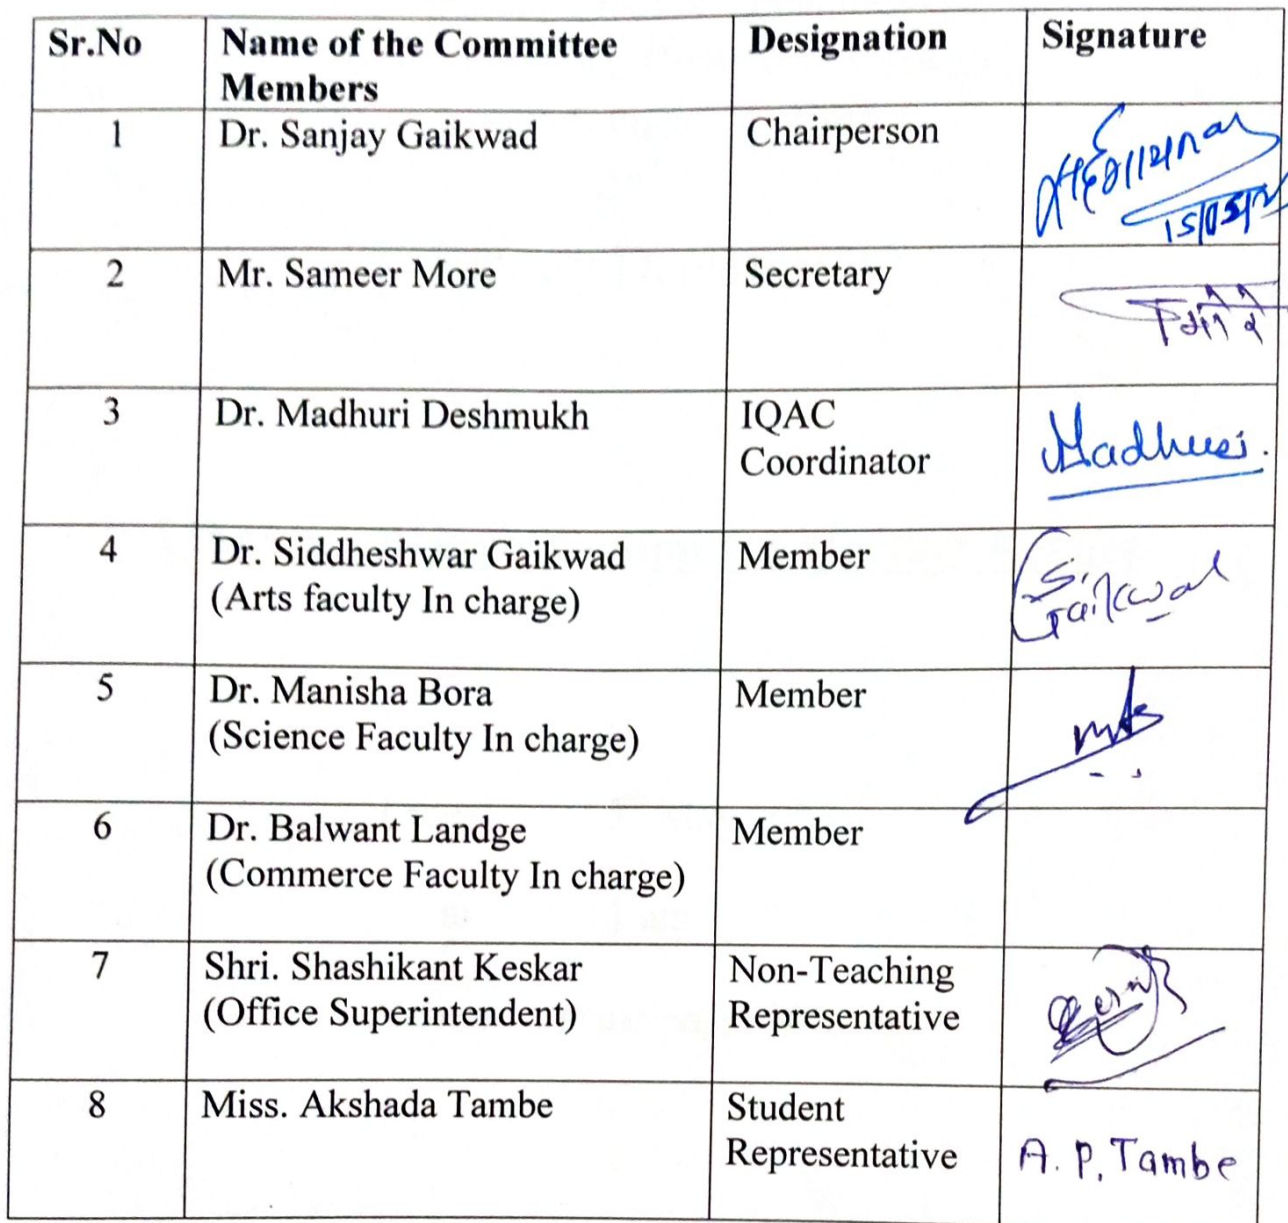 Sr.No Name of the Committee Designation Signature
Members
1 Dr. Sanjay Gaikwad Chairperson
2 Mr. Sameer More Secretary
3 Dr. Madhuri Deshmukh IQAC
Coordinator Madhuri.
4 Dr. Siddheshwar Gaikwad Member
(Arts faculty In charge) S. Gaikwad
5 Dr. Manisha Bora Member
(Science Faculty In charge)
6 Dr. Balwant Landge Member
(Commerce Faculty In charge)
7 Shri. Shashikant Keskar Non-Teaching
(Office Superintendent) Representative
8 Miss. Akshada Tambe Student
Representative A. P. Tambe